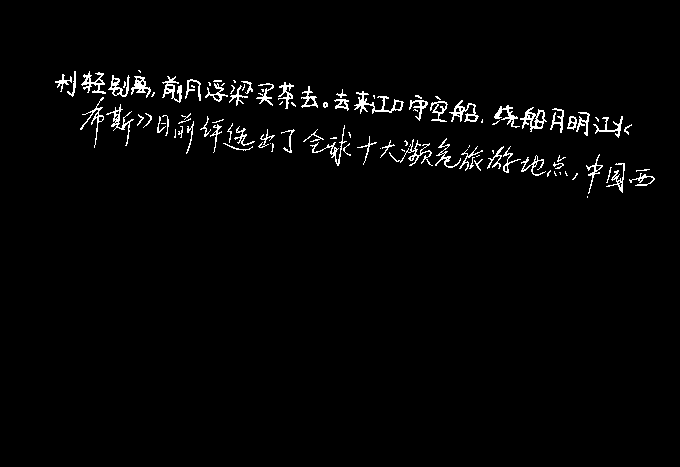 利轻别离,前月浮梁买茶去。去来江口守空船,绕船月明江水
布斯》日前评选出了全球十大濒危旅游地点,中国西